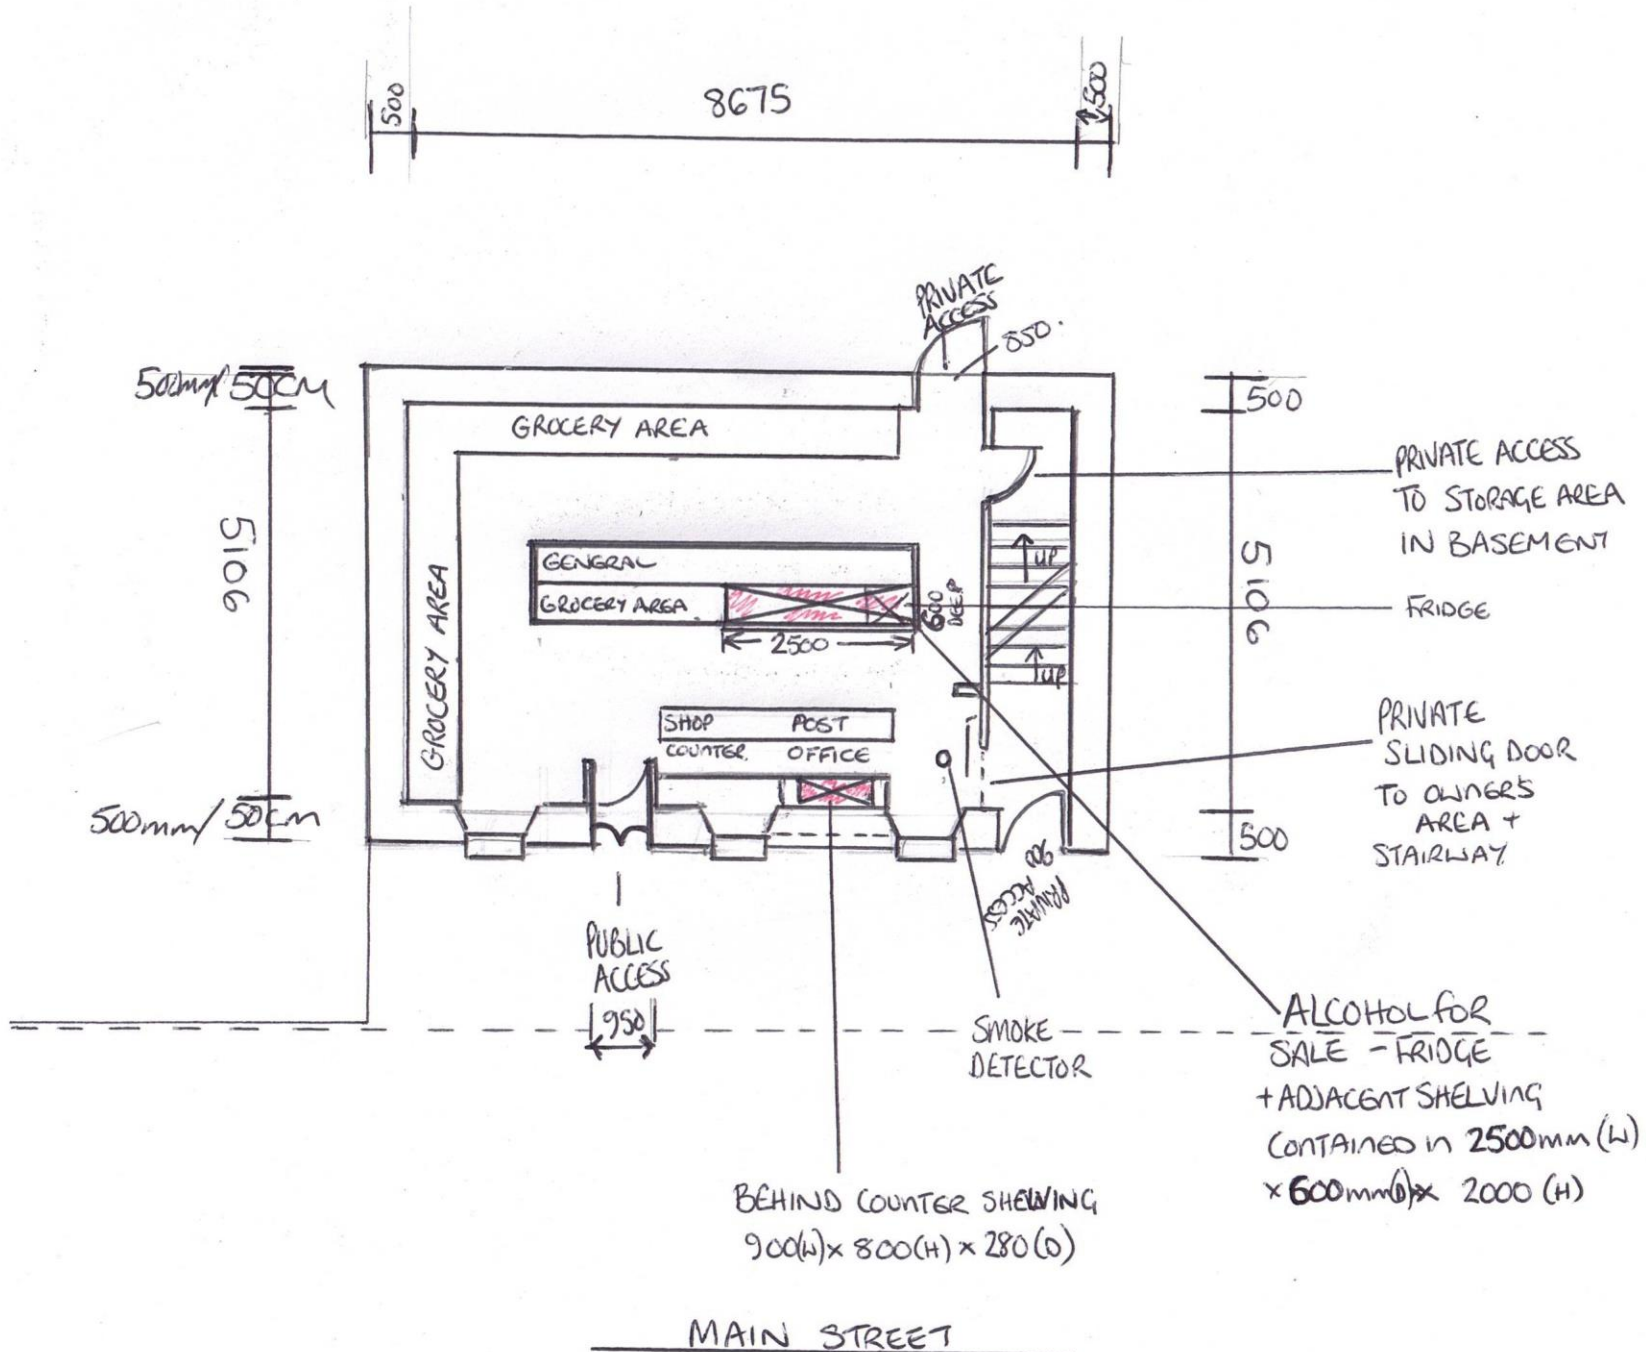 500
8675
500
PRIVATE
ACCESS
850.
500mm/50CM
500
GROCERY AREA
PRIVATE ACCESS
TO STORAGE AREA
IN BASEMENT
5106
GROCERY AREA
GENERAL
GROCERY AREA
600
DEEP
UP
5106
FRIDGE
2500
UP
SHOP POST
COUNTER. OFFICE
PRIVATE
SLIDING DOOR
TO OWNERS
AREA +
STAIRWAY
500mm/50cm
500
900
PRIVATE
ACCESS
PUBLIC
ACCESS
950
SMOKE
DETECTOR
ALCOHOL FOR
SALE - FRIDGE
+ ADJACENT SHELVING
CONTAINED in 2500mm (W)
x 600mm(D)x 2000 (H)
BEHIND COUNTER SHELVING
900(W)x 800(H) x 280(D)
MAIN STREET